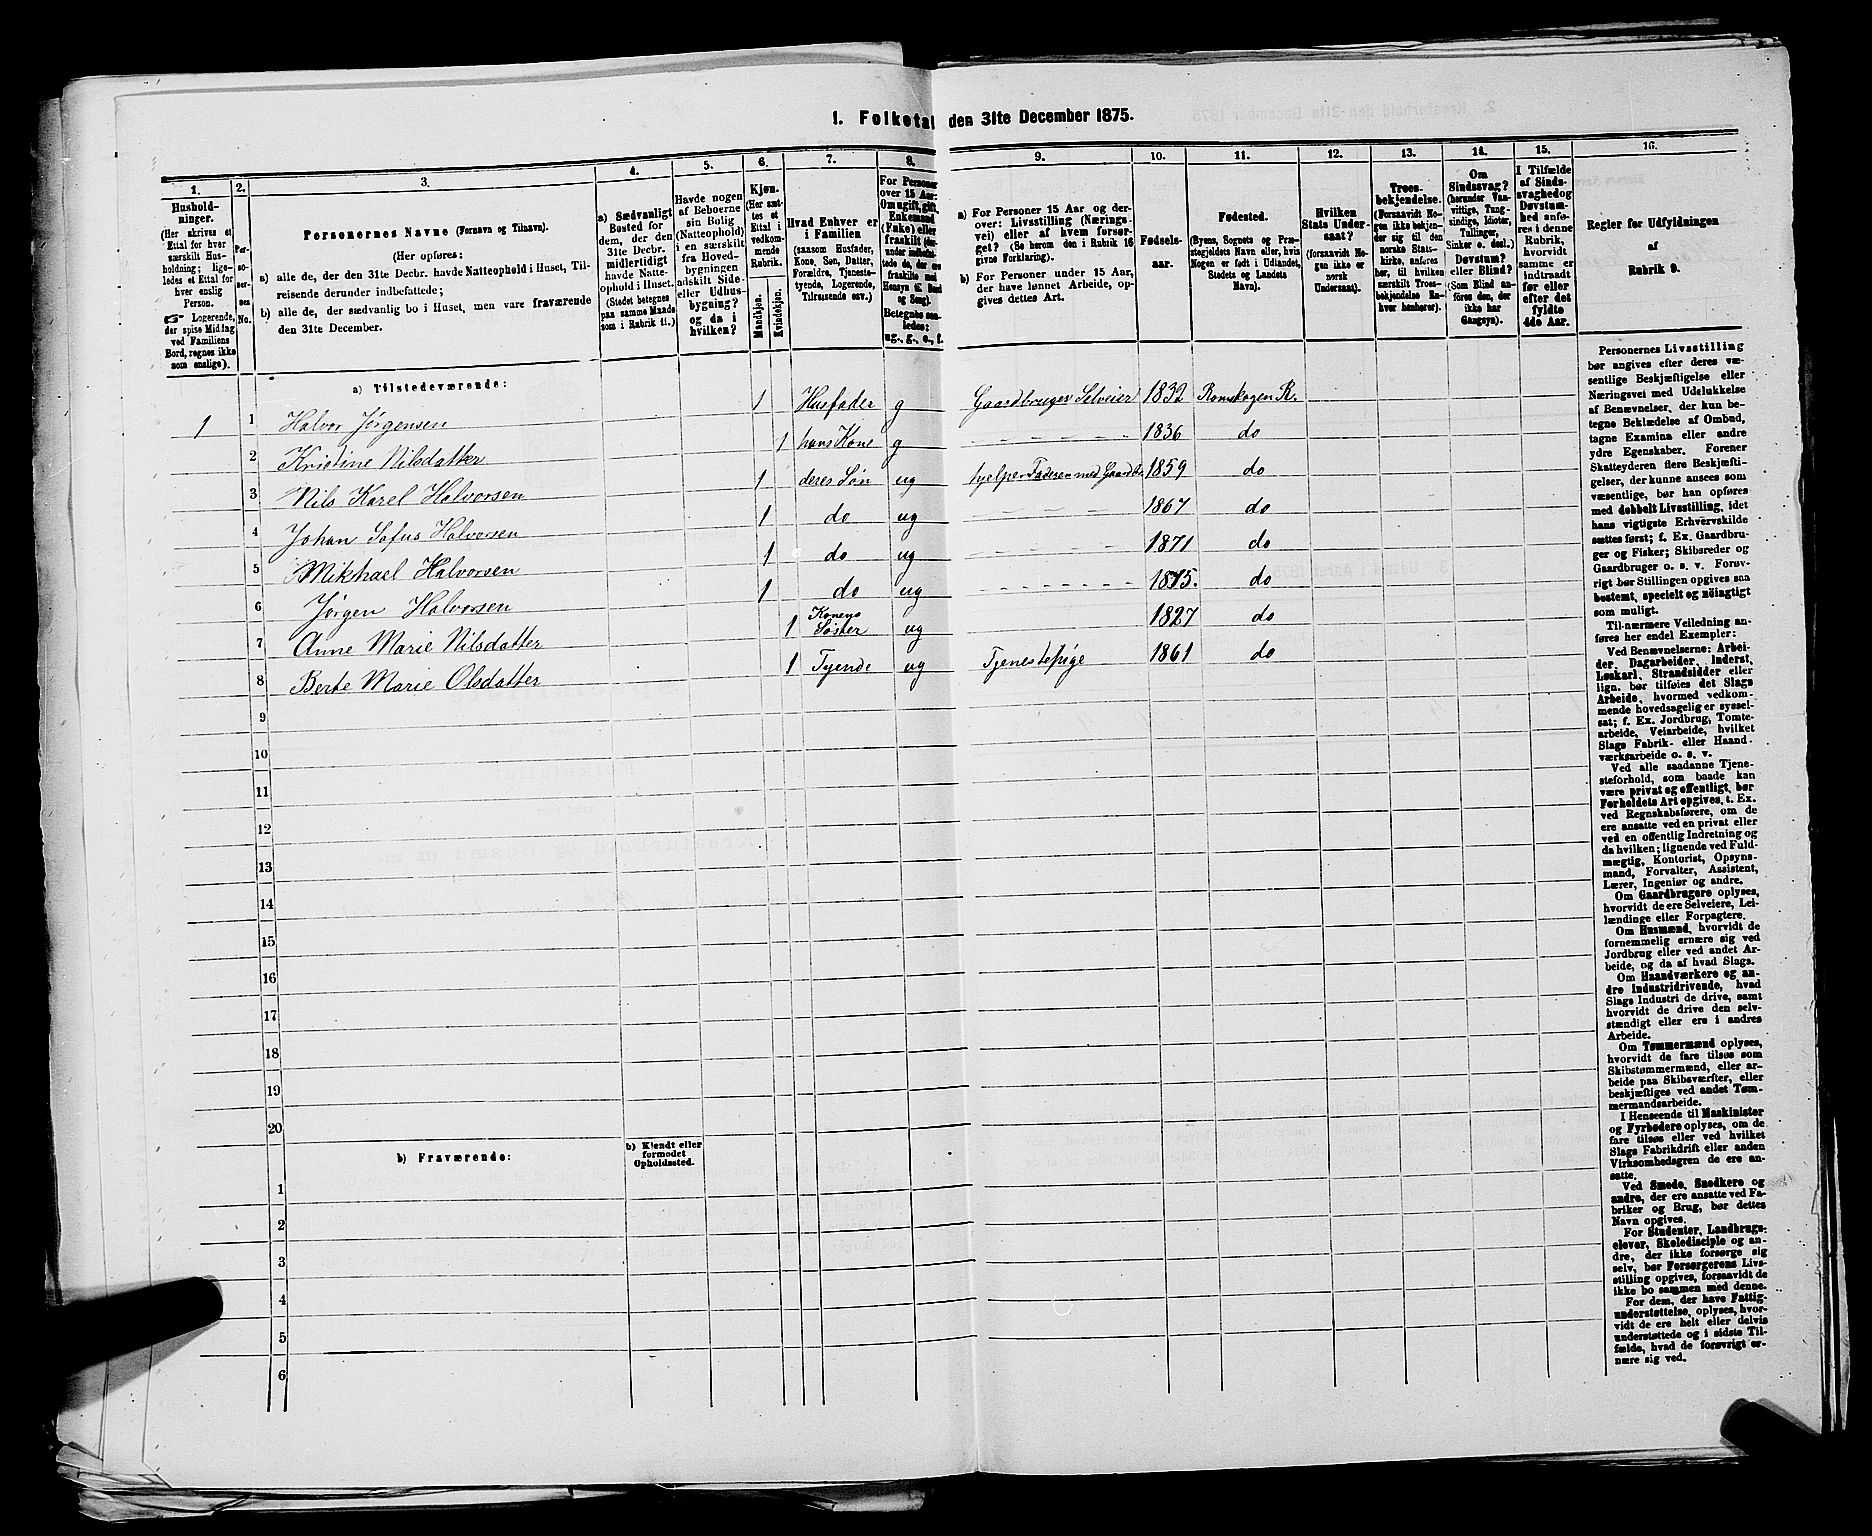 1. Folketal den 31te December 1875.
1.
2.
3.
4.
5.
6.
7.
8.
9.
10.
11.
12.
13.
14.
15.
16.
Hushold-
ninger.
(Her skrives et
Ettal for hver
særskilt Hus-
holdning; lige-
ledes et Ettal for
hver enslig
Person.
Logerende,
der spise Middag
ved Familiens
Bord, regnes ikke
som enslige).
Per-
so-
ner-
nes
No.
Personernes Navne (Fornavn og Tilnavn).
(Her opføres:
a) alle de, der den 31te Decbr. havde Natteophold i Huset, Til-
reisende derunder indbefattede;
b) alle de, der sædvanlig bo i Huset, men vare fraværende
den 31te December.
a) Sædvanligt
Bosted for
dem, der den
31te Decbr.
midlertidigt
havde Natte-
ophold i Huset.
(Stedet betegnes
paa samme Maade
som i Rubrik 11.)
Havde nogen
af Beboerne
sin Bolig
(Natteophold)
i en særskilt
fra Hoved-
bygningen
adskilt Side-
eller Udhus-
bygning?
og da i
hvilken?
Kjøn.
(Her sæt-
tes et
Ettal i
vedkom-
mende
Rubrik.
Mandkjøn.
Kvindekjøn.
Hvad Enhver er
i Familien
(saasom Husfader,
Kone, Søn, Datter,
Forældre, Tjeneste-
tyende, Logerende,
Tilreisende osv.)
For Personer
over 15 Aar:
Om ugift, gift,
Enkemand
(Enke) eller
fraskilt
Betegnes saa-
ledes:
ug., g., e., f.
a) For Personer 15 Aar og der-
over: Livsstilling (Nærings-
vei) eller af hvem forsør-
get? (Se herom den i Rubrik 16
givne Forklaring).
b) For Personer under 15 Aar,
der have lønnet Arbeide, op-
gives dettes Art.
Fødsels-
aar.
Fødested.
(Byens, Sognets og Præ-
stegjeldets Navn eller, hvis
Nogen er født i Udlandet,
Stedets og Landets
Navn).
Hvilken
Stats Under-
saat?
(forsaavidt No-
gen ikke er
norsk
Undersaat).
Troes-
bekjendelse.
(Forsaavidt No-
gen ikke bekjen-
der sig til den
norske Stats-
kirke, anføres
her, til hvilken
særskilt Troes-
bekjendelse En-
hver henhører).
Om
Sindssvag?
(herunder Van-
vittige, Tung-
sindige, Idioter,
Tullinger,
Sinker o. desl.)
Døvstum?
eller Blind?
(Som Blind an-
føres den, der
ikke har
Gangsyn).
I Tilfælde
af Sinds-
svaghed og
Døvstum-
hed anfø-
res i denne
Rubrik,
hvorvidt
samme er
indtraadt
før eller
efter det
fyldte
4de Aar.
Regler for Udfyldningen
af
Rubrik 9.
a) Tilstedeværende:
1 1 Halvor Jørgensen 1 Husfader g Gaardbruger Selveier 1832 Romskogen R.
2 Kristine Nilsdatter 1 hans Kone g 1836 do
3 Nils Karel Halvorsen 1 deres Søn ug hjelper Faderen med Gaardbr. 1859 do
4 Johan Sofus Halvorsen 1 do ug 1867 do
5 Mikhael Halvorsen 1 do ug 1871 do
6 Jørgen Halvorsen 1 do ug 1875. do
7 Anne Marie Nilsdatter 1 Konens Søster ug 1827 do
8 Berte Marie Olsdatter 1 Tyende ug Tjenestepige 1861 do
9
10
11
12
13
14
15
16
17
18
19
20
b) Fraværende:
b) Kjendt eller
formodet
Opholdssted.
1
2
3
4
5
6
Personernes Livsstilling
bør angives efter deres væ-
sentlige Beskjæftigelse eller
Næringsvei med Udelukkelse
af Benævnelser, der kun be-
tegne Beklædelse af Ombud,
tagne Examina eller andre
ydre Egenskaber. Forener
Skatteyderen flere Beskjæfti-
gelser, der kunne ansees som
væsentlige, bør han opføres
med dobbelt Livsstilling, idet
hans vigtigste Erhvervskilde
sættes først; f. Ex. Gaardbru-
ger og Fisker; Skibsreder og
Gaardbruger o. s. v. Forøv-
rigt bør Stillingen opgives saa
bestemt, specielt og nöiagtigt
som muligt.
Til nærmere Veiledning an-
føres her endel Exempler:
Ved Benævnelserne: Arbei-
der, Dagarbeider, Inderst,
Løskarl, Strandsidder eller
lign. bør tilføies det Slags
Arbeide, hvormed vedkom-
mende hovedsagelig er syssel-
sat; f. Ex. Jordbrug, Tomte-
arbeide, Veiarbeide, hvilket
Slags Fabrik- eller Haand-
værksarbeide o. s. v.
Ved alle saadanne Tjene-
steforhold, som baade kan
være privat og offentligt, bør
Forholdets Art opgives, t. Ex.
ved Regnskabsførere, om de
ere ansatte ved en privat eller
ved en offentlig Indretning og
da hvilken; lignende ved Fuld-
mægtig, Kontorist, Opsyns-
mand, Forvalter, Assistent,
Lærer, Ingeniør og andre.
Om Gaardbrugere oplyses,
hvorvidt de ere Selveiere, Lei-
lændinge eller Forpagtere.
Om Husmænd, hvorvidt de
fornemmelig ernære sig ved
Jordbrug eller ved andet Ar-
beide, og da af hvad Slags.
Om Haandværkere og an-
dre Industridrivende, hvad
Slags Industri de drive, samt
hvorvidt de drive den selv-
stændigt eller ere i andres
Arbeide.
Om Tømmermænd oplyses,
hvorvidt de fare tilsøs som
Skibstømmermænd, eller ar-
beide paa Skibsværfter, eller
beskjæftiges ved andet Tøm-
mermandsarbeide.
I Henseende til Maskinister
og Fyrbødere oplyses, om de
fare tilsøs eller ved hvilket
Slags Fabrikdrift eller anden
Virksomhedsgren de ere an-
satte.
Ved Smede, Snedkere og
andre, der ere ansatte ved Fa-
briker og Brug, bør dettes
Navn opgives.
For Studenter, Landbrugs-
elever, Skoledisciple og an-
dre, der ikke forsørge sig
selv, bør Forsørgerens Livs-
stilling opgives, forsaavidt de
ikke bo sammen med denne.
For dem, der have Fattig-
understøttelse, oplyses, hvor-
vidt de ere helt eller delvis
understøttede og i sidste Til-
fælde, hvad de forøvrigt er-
nære sig ved.